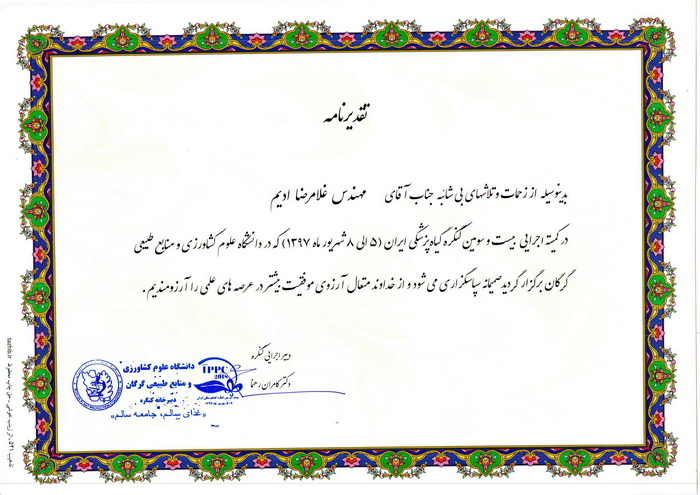 تقدیرنامه
بدینوسیله از زحمات و تلاشهای بی شائبه جناب آقای مهندس غلامرضا ادیم
در کمیته اجرایی بیست و سومین کنگره گیاه پزشکی ایران (۵ الی ۸ شهریور ماه ۱۳۹۷) که در دانشگاه علوم کشاورزی و منابع طبیعی
گرگان برگزار گردید صمیمانه سپاسگزاری می شود و از خداوند متعال آرزوی موفقیت بیشتر در عرصه های علمی را آرزومندیم.
دبیر اجرایی کنگره
دکتر کامران رهنما
IPPC
2018
دانشگاه علوم کشاورزی
و منابع طبیعی گرگان
دبیرخانه کنگره
«غذای سالم، جامعه سالم»